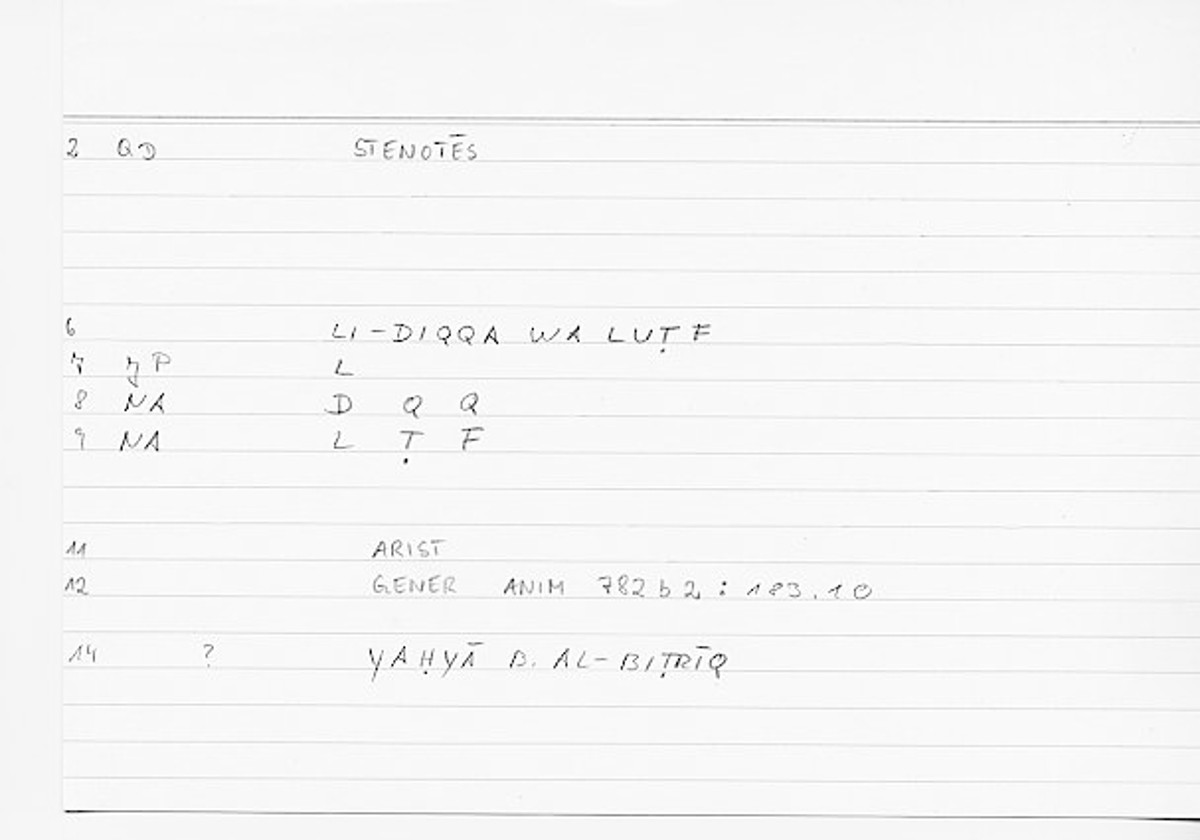 2 QD STENOTĒS
6 LI-DIQQA WA LUṬF
7 JP L
8 NA D Q Q
9 NA L Ṭ F
11 ARIST
12 GENER ANIM 782 b 2 : 183.10
14 ? YAḤYĀ B. AL-BIṬRĪQ